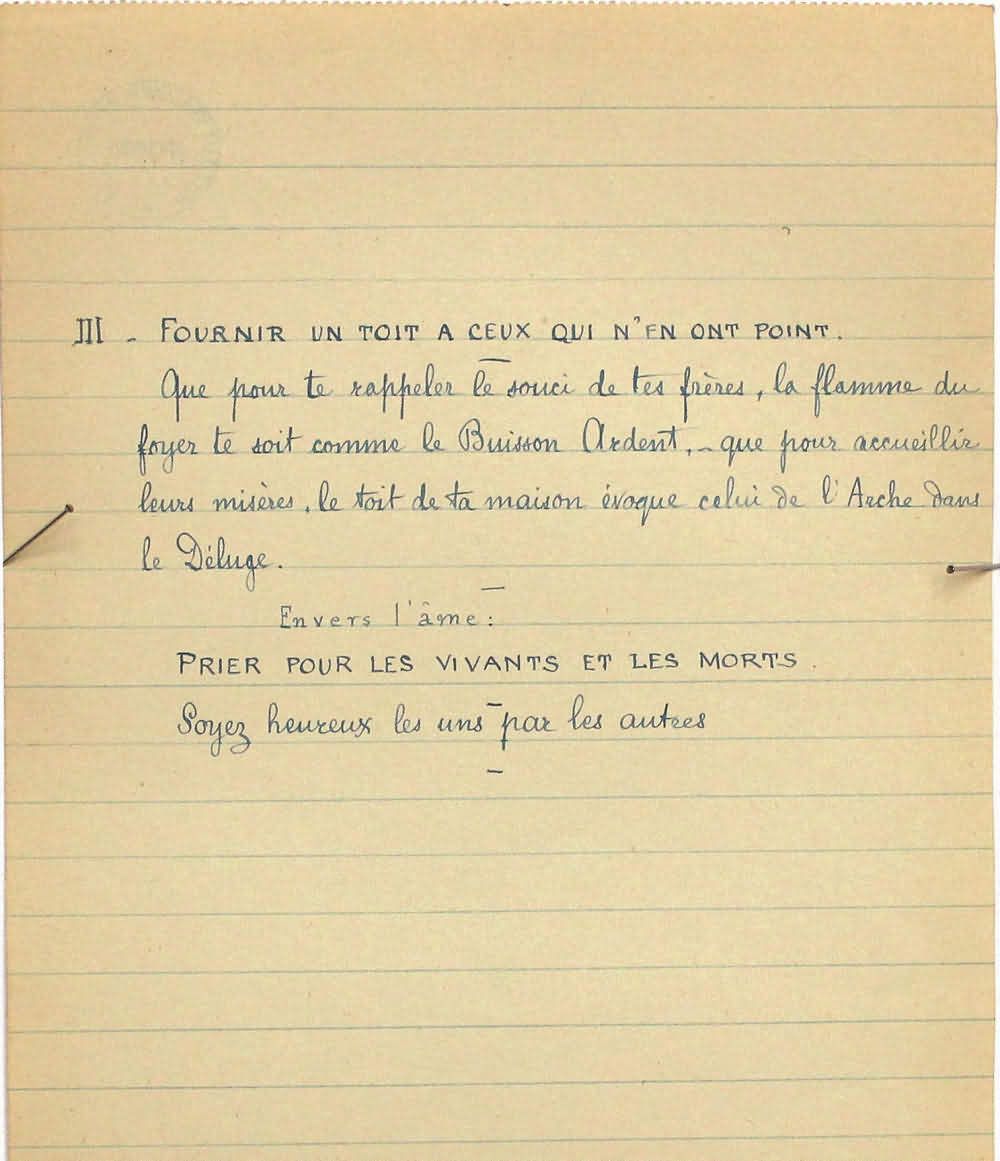 III - FOURNIR UN TOIT A CEUX QUI N'EN ONT POINT.
Que pour te rappeler le souci de tes frères, la flamme du
foyer te soit comme le Buisson Ardent, - que pour accueillir
leurs misères, le toit de ta maison évoque celui de l'Arche dans
le Déluge.
Envers l'âme:
PRIER POUR LES VIVANTS ET LES MORTS.
Soyez heureux les uns par les autres